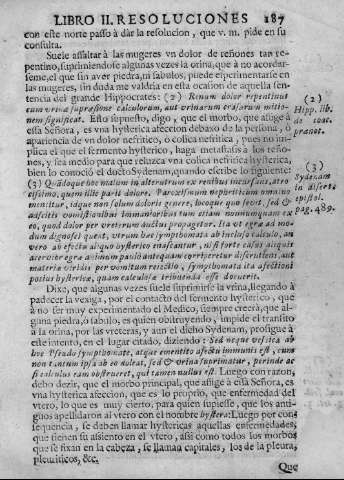 LIBRO II. RESOLUCIONES 187
con este norte passo à dàr la resolucion, que v. m. pide en su
consulta.
Suele assaltar à las mugeres vn dolor de reñones tan re-
pentino, suprimiendose algunas vezes la orina, que à no acordar-
seme, el que sin aver piedra, ni sabulos, puede experimentarse en
las mugeres, sin duda me valdria en esta ocasion de aquella sen-
tencia del grande Hippocrates: (2) Renum dolor repentinus
cum vrinæ supressione calculorum, aut vrinarum crasarum mitio-
nem significat. Esto supuesto, digo, que el morbo, que aflige à
essa Señora, es vna hysterica afeccion debaxo de la persona, ò
apariencia de vn dolor nefritico, ò colica nefritica, pues no im-
plica el que el fermento hysterico, haga metastasis à los reño-
nes, y sea medio para que reluzca vna colica nefritica hysterica,
bien lo conociò el docto Sydenam, quando escribe lo siguiente:
(3) Quãdoque hoc malum in alterutrum ex renibus incursans, atro-
cissimo, quem ille parit dolore. Paroxismum nephriticum omnino
mentitur, idque non solum doloris genere, locoque quo sevit, sed &
adscitis vomitionibus immanioribus tum etiam nonnumquam ex
eo, quod dolor per vreterum ductus propagetur. Ita vt egre ad mo-
dum dignosci queat, vtrum hæc symptomata ab incluso calculo, an
vero ab efectu aliquo hysterico enascantur, nisi forte casus aliquis
acerviter ægræ animum paulo antequam corriperetur discutiens, aut
materia viridis per vomitum reiectio, symptomata ita afectioni
potius hystericæ, quam calculosæ tribuenda esse docuerit.
Dixe, que algunas vezes suele suprimirse la vrina, llegando à
padecer la vexiga, por el contacto del fermento hysterico, que
à no ser muy experimentado el Medico, siempre creerà, que al-
guna piedra, ò sabulo, es quien obstruyendo, impide el transito
à la orina, por las vreteras, y aun el dicho Sydenam, prosigue à
este intento, en el lugar citado, diziendo: Sed neque vesica ab
hoc Pseudo symptomate, atque ementito afectu immunis est, cum
non tantum ipsa ab eo doleat, sed & vrina suprimatur, perinde ac
si calculus eam obstrueret, qui tamen nullus est. Luego con razon,
debo dezir, que el morbo principal, que aflige à essa Señora, es
vna hysterica afeccion, que es lo proprio, que enfermedad del
vtero, lo que es muy cierto, para quien supiesse, que los anti-
guos apellidaron al vtero con el nombre hystera: Luego por con-
sequencia, se deben llamar hystericas aquellas enfermedades,
que tienen su assiento en el vtero, assi como todos los morbos
que se fixan en la cabeza, se llaman capitales, los de la pleura,
pleuriticos, &c.
Que
(2)
Hipp. lib.
de coac.
prænot.
(3)
Sydenam
in disert.
epistol.
pag. 489.